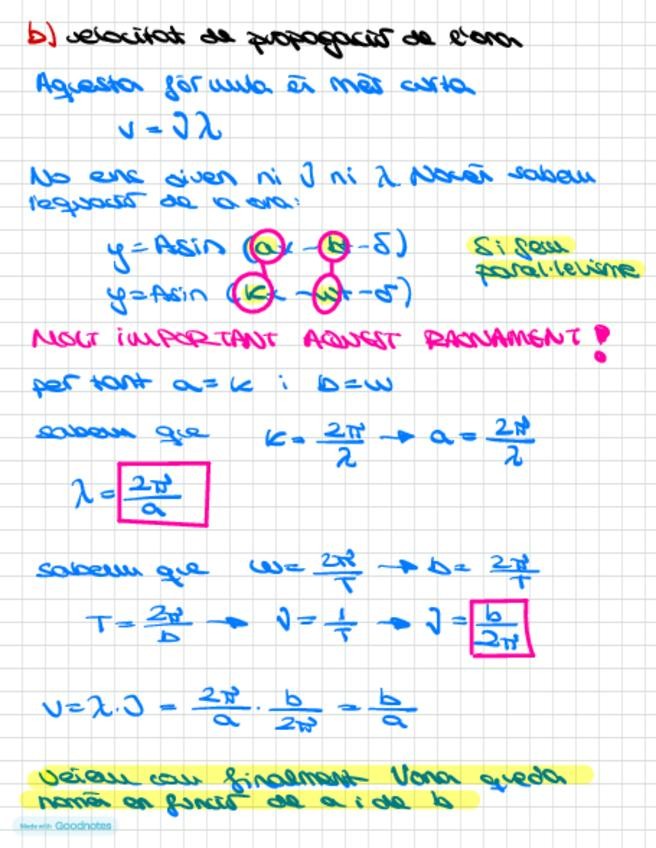 b) velocitat de propagació de l'ona
Aquesta fórmula és més curta
v = ν λ
No ens diuen ni ν ni λ. Només sabem
l'equació de la ona:
y = A sin (ax - bt - δ)
Si feu
paral·lelisme
y = A sin (kx - wt - δ)
MOLT IMPORTANT AQUEST RAONAMENT!
per tant a = k i b = w
sabem que k = 2π/λ → a = 2π/λ
λ = 2π/a
sabem que w = 2π/T → b = 2π/T
T = 2π/b → ν = 1/T → ν = b/2π
v = λ · ν = 2π/a · b/2π = b/a
veiem com finalment l'ona queda
només en funció de a i de b
Made with Goodnotes